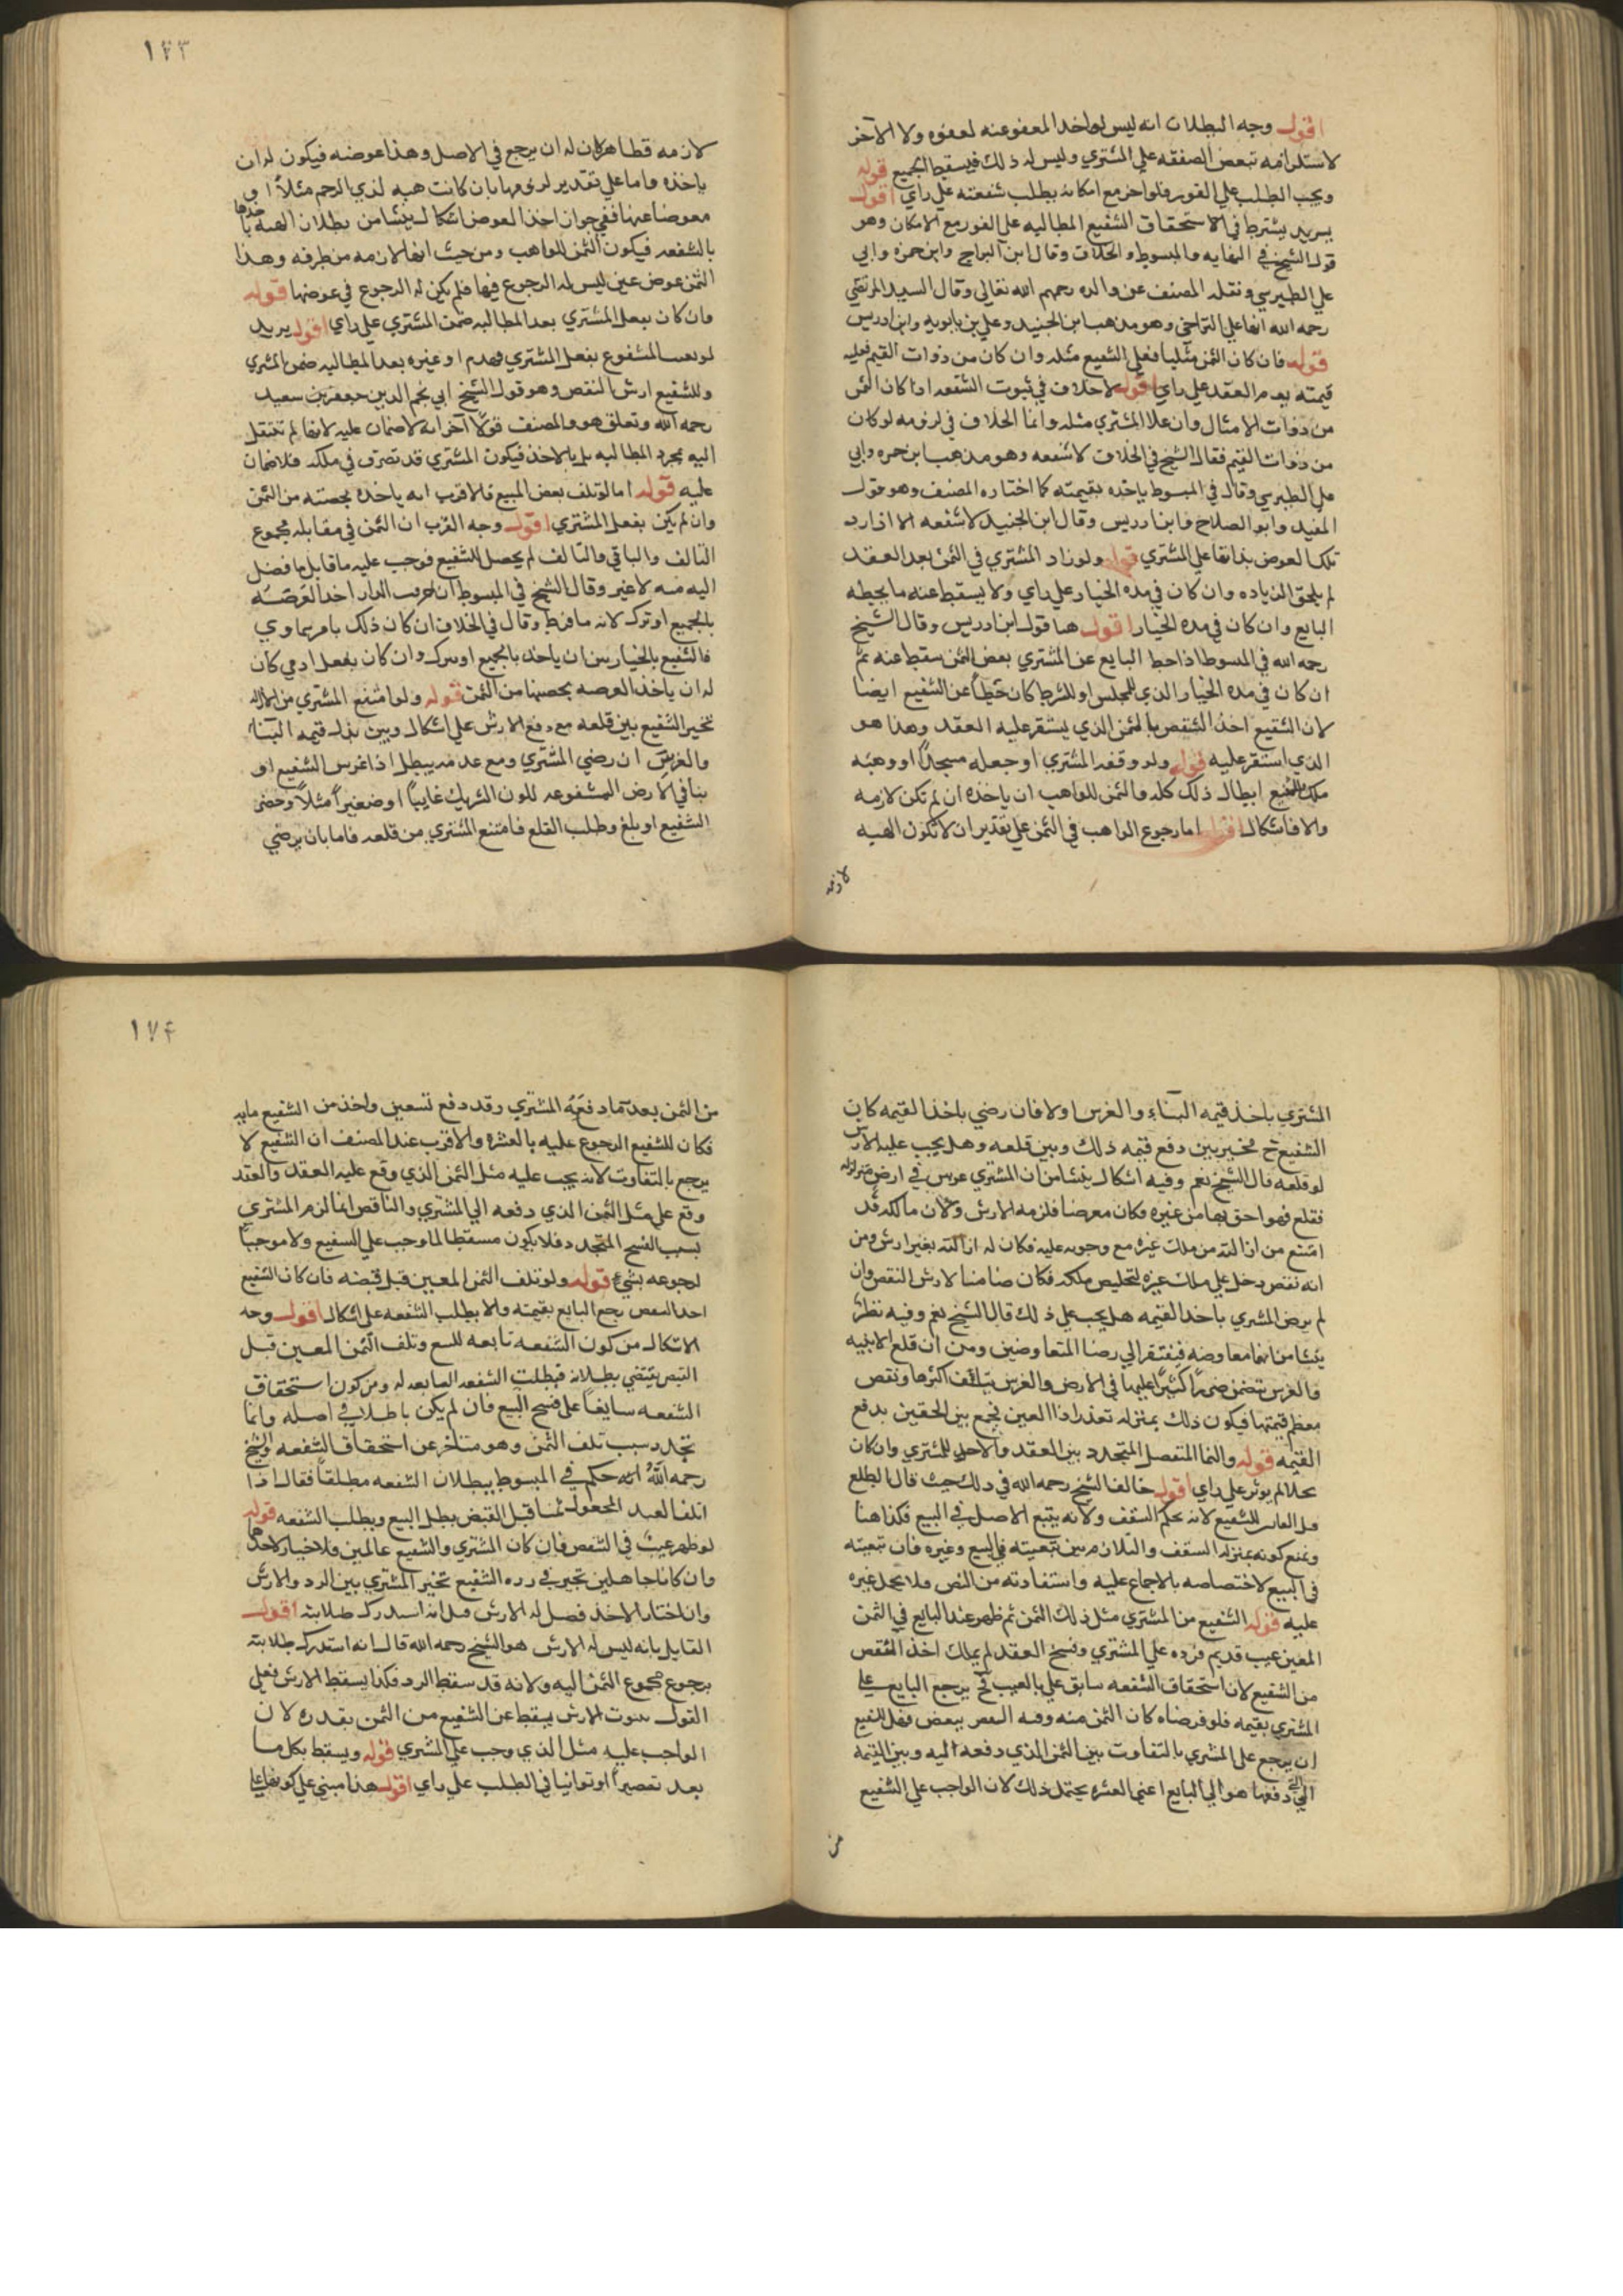 اقول وجه البطلان انه ليس لواحد المعفو عنه لعفوه ولا الآخر
لاستلزامه تبعض الصفقه علي المشتري وليس له ذلك فيسقط الجميع قوله
ويجب الطلب علي الفور فلو اخر مع امكانه بطلب شفعته علي راي اقول
يريد يشترط في الاستحقاق الشفيع المطالبه علي الفور مع الامكان وهو
قول الشيخ في النهايه والمبسوط والخلاف وقال ابن البراج وابن حمزه وابي
علي الطبرسي ونقله المصنف عن والده رحمهم الله تعالي وقال السيد المرتضي
رحمه الله انها علي التراخي وهو مذهب ابن الجنيد وعلي بن بابويه وابن ادريس
قوله فان كان الثمن مثليا فعلي الشفيع مثله وان كان من ذوات القيم فعليه
قيمته يوم العقد علي راي اقول لا خلاف في ثبوت الشفعه اذا كان الثمن
من ذوات الامثال وان علا المشتري مثله وانما الخلاف في لزومه لو كان
من ذوات القيم فقال الشيخ في الخلاف لا شفعه وهو مذهب ابن حمزه وابي
علي الطبرسي وقال في المبسوط ياخذه بقيمته كما اختاره المصنف وهو قول
المفيد وابو الصلاح وابن ادريس وقال ابن الجنيد لا شفعه الا اذا رد
تلك العوض بذاتها علي المشتري قوله ولو زاد المشتري في الثمن بعد العقد
لم يلحق الزياده وان كان في مده الخيار علي راي ولا يسقط عنه ما يحطه
البايع وان كان في مده الخيار اقول هذا قول ابن ادريس وقال الشيخ
رحمه الله في المبسوط اذا حط البايع عن المشتري بعض الثمن سقط عنه ثم
ان كان في مده الخيار الذي للمجلس او للشرط كان حطا عن الشفيع ايضا
لان الشفيع اخذ الشقص بالثمن الذي يستقر عليه العقد وهذا هو
الذي استقر عليه قوله ولو وقفه المشتري او جعله مسجدًا او وهبه
ملك الشفيع ابطال ذلك كله والثمن للواهب ان ياخذه ان لم تكن لازمه
والا فاشكال اقول اما رجوع الواهب في الثمن علي تقدير ان لا تكون الهبه
لازمه
١٧٣
لازمه فظاهر لان له ان يرجع في الاصل وهذا عوضه فيكون له ان
ياخذه واما علي تقدير لزومها بان كانت هبه لذي الرحم مثلاً او
معوضا عنها ففي جواز اخذ العوض اشكال ينشا من بطلان الهبه باخذها
بالشفعه فيكون الثمن للواهب ومن حيث انها لازمه من طرفه وهذا
الثمن عوض عين ليس له الرجوع فيها فلم يكن له الرجوع في عوضها قوله
وان كان بفعل المشتري بعد المطالبه ضمن المشتري علي راي اقول يريد
لو تعيب المشفوع بفعل المشتري بهدم او غيره بعد المطالبه ضمن المشتري
وللشفيع ارش النقص وهو قول الشيخ ابي نجم الدين جعفر بن سعيد
رحمه الله وتعلق هو والمصنف قولا آخر انه لا ضمان عليه لانها لم تنتقل
اليه بمجرد المطالبه بل بالاخذ فيكون المشتري قد تصرف في ملكه فلا ضمان
عليه قوله اما لو تلف بعض المبيع فالاقرب انه ياخذه بحصته من الثمن
وان لم يكن بفعل المشتري اقول وجه القرب ان الثمن في مقابله مجموع
التالف والباقي والتالف لم يحصل للشفيع فوجب عليه ما قابل ما فضل
اليه منه لا غير وقال الشيخ في المبسوط ان خربت الدار اخذ العرصه
بالجميع او ترك لانه ما فرط وقال في الخلاف ان كان ذلك بامر سماوي
فالشفيع بالخيار بين ان ياخذ بالجميع او يترك وان كان بفعل ادمي كان
له ان ياخذ العرصه بحصتها من الثمن قوله ولو امتنع المشتري من الازاله
تخير الشفيع بين قلعه مع دفع الارش علي اشكال وبين بذل قيمه البناء
والغرس ان رضي المشتري ومع عدمه يبطل اذا غرس الشفيع او
بنا في الارض المشفوعه لكون الشريك غايبًا او صغيرًا مثلاً وحضر
الشفيع او بلغ وطلب القلع فامتنع المشتري من قلعه فاما بان يرضي
المشتري باخذ قيمه البناء والغرس او لا فان رضي باخذ القيمه كان
الشفيع ح مخير بين دفع قيمه ذلك وبين قلعه وهل يجب عليه الارش
لو قلعه قال الشيخ نعم وفيه اشكال ينشا من ان المشتري غرس في ارض متزلزله
فقلع فهو احق بها من غيره فكان معرضا فلزمه الارش ولان مالكه قد
امتنع من ازالته من ملك غيره مع وجوبه عليه فكان له ازالته بغير ارش ومن
انه نقص دخل علي ملك غيره لتخليص ملكه فكان ضامنا لارش النقص وان
لم يرض المشتري باخذ القيمه هل يجب علي ذلك قال الشيخ نعم وفيه نظر
ينشا من انها معاوضه فيفتقر الي رضا المتعاوضين ومن ان قلع الابنيه
والغرس يتضمن ضررًا كثيرًا عليهما في الارض والغرس بتلف اكثرها ونقص
معظم قيمتها فيكون ذلك بمنزله تعذر اذا العين فجمع بين الحقين بدفع
القيمه قوله والنما المنفصل المتجدد بين العقد والاخذ للمشتري وان كان
نخلا لم يوبر علي راي اقول خالف الشيخ رحمه الله في ذلك حيث قال الطلع
قبل التابير للشفيع لانه بحكم السقف ولانه يتبع الاصل في البيع فكذا هنا
ونمنع كونه بمنزله السقف والتلازم بين تبعيته في البيع وغيره فان تبعيته
في البيع لاختصاصه بالاجماع عليه واستفادته من النص فلا يحمل غيره
عليه قوله الشفيع من المشتري مثل ذلك الثمن ثم ظهر عند البايع في الثمن
المعين عيب قديم فرده علي المشتري وفسخ العقد لم يملك اخذ الشقص
من الشفيع لان استحقاق الشفعه سابق علي العيب فح يرجع البايع علي
المشتري بقيمته فلو فرضناه كان الثمن منه وفيه النقص ببعض فهل للشفيع
ان يرجع علي المشتري بالتفاوت بين الثمن الذي دفعه اليه وبين القيمه
التي دفعها هو الي البايع اعني العشره يحتمل ذلك لان الواجب علي الشفيع
من
١٧٤
من الثمن بعد ما دفعه المشتري وقد دفع تسعين واخذ من الشفيع مايه
فكان للشفيع الرجوع عليه بالعشره والاقرب عند المصنف ان الشفيع لا
يرجع بالتفاوت لانه يجب عليه مثل الثمن الذي وقع عليه العقد والعقد
وقع علي مثل الثمن الذي دفعه الي المشتري والناقص انما لزم المشتري
بسبب الفسخ المتجدد فلا يكون مسقطا لما وجب علي الشفيع ولا موجبًا
لرجوعه بشيء قوله ولو تلف الثمن المعين قبل قبضه فان كان الشفيع
اخذ الشقص رجع البايع بقيمته والا بطلت الشفعه علي اشكال اقول وجه
الاشكال من كون الشفعه تابعه للبيع وتلف الثمن المعين قبل
القبض يقتضي بطلانه فبطلت الشفعه التابعه له ومن كون استحقاق
الشفعه سابقًا علي فسخ البيع فان لم يكن باطلا في اصله وانما
تجدد سبب تلف الثمن وهو متاخر عن استحقاق الشفعه والشيخ
رحمه الله انه حكم في المبسوط ببطلان الشفعه مطلقا فقال اذا
اتلف العبد المجعول ثمنا قبل القبض بطل البيع وبطلت الشفعه قوله
لو ظهر عيب في الشقص فان كان المشتري والشفيع عالمين فلا خيار لاحدهما
وان كانا جاهلين تخير في رده الشفيع تخير المشتري بين الرد والارش
وان اختار الاخذ فصل له الارش قيل انه استدرك ظلامته اقول
القايل بانه ليس له الارش هو الشيخ رحمه الله قال انه استدرك ظلامته
برجوع مجموع الثمن اليه ولانه قد سقط الرد فكذا يسقط الارش فعلي
القول بثبوت الارش يسقط عن الشفيع من الثمن بقدره لان
الواجب عليه مثل الذي وجب علي المشتري قوله ويسقط بكل ما
يعد تقصيرًا او توانيا في الطلب علي راي اقول هذا مبني علي كونها علي